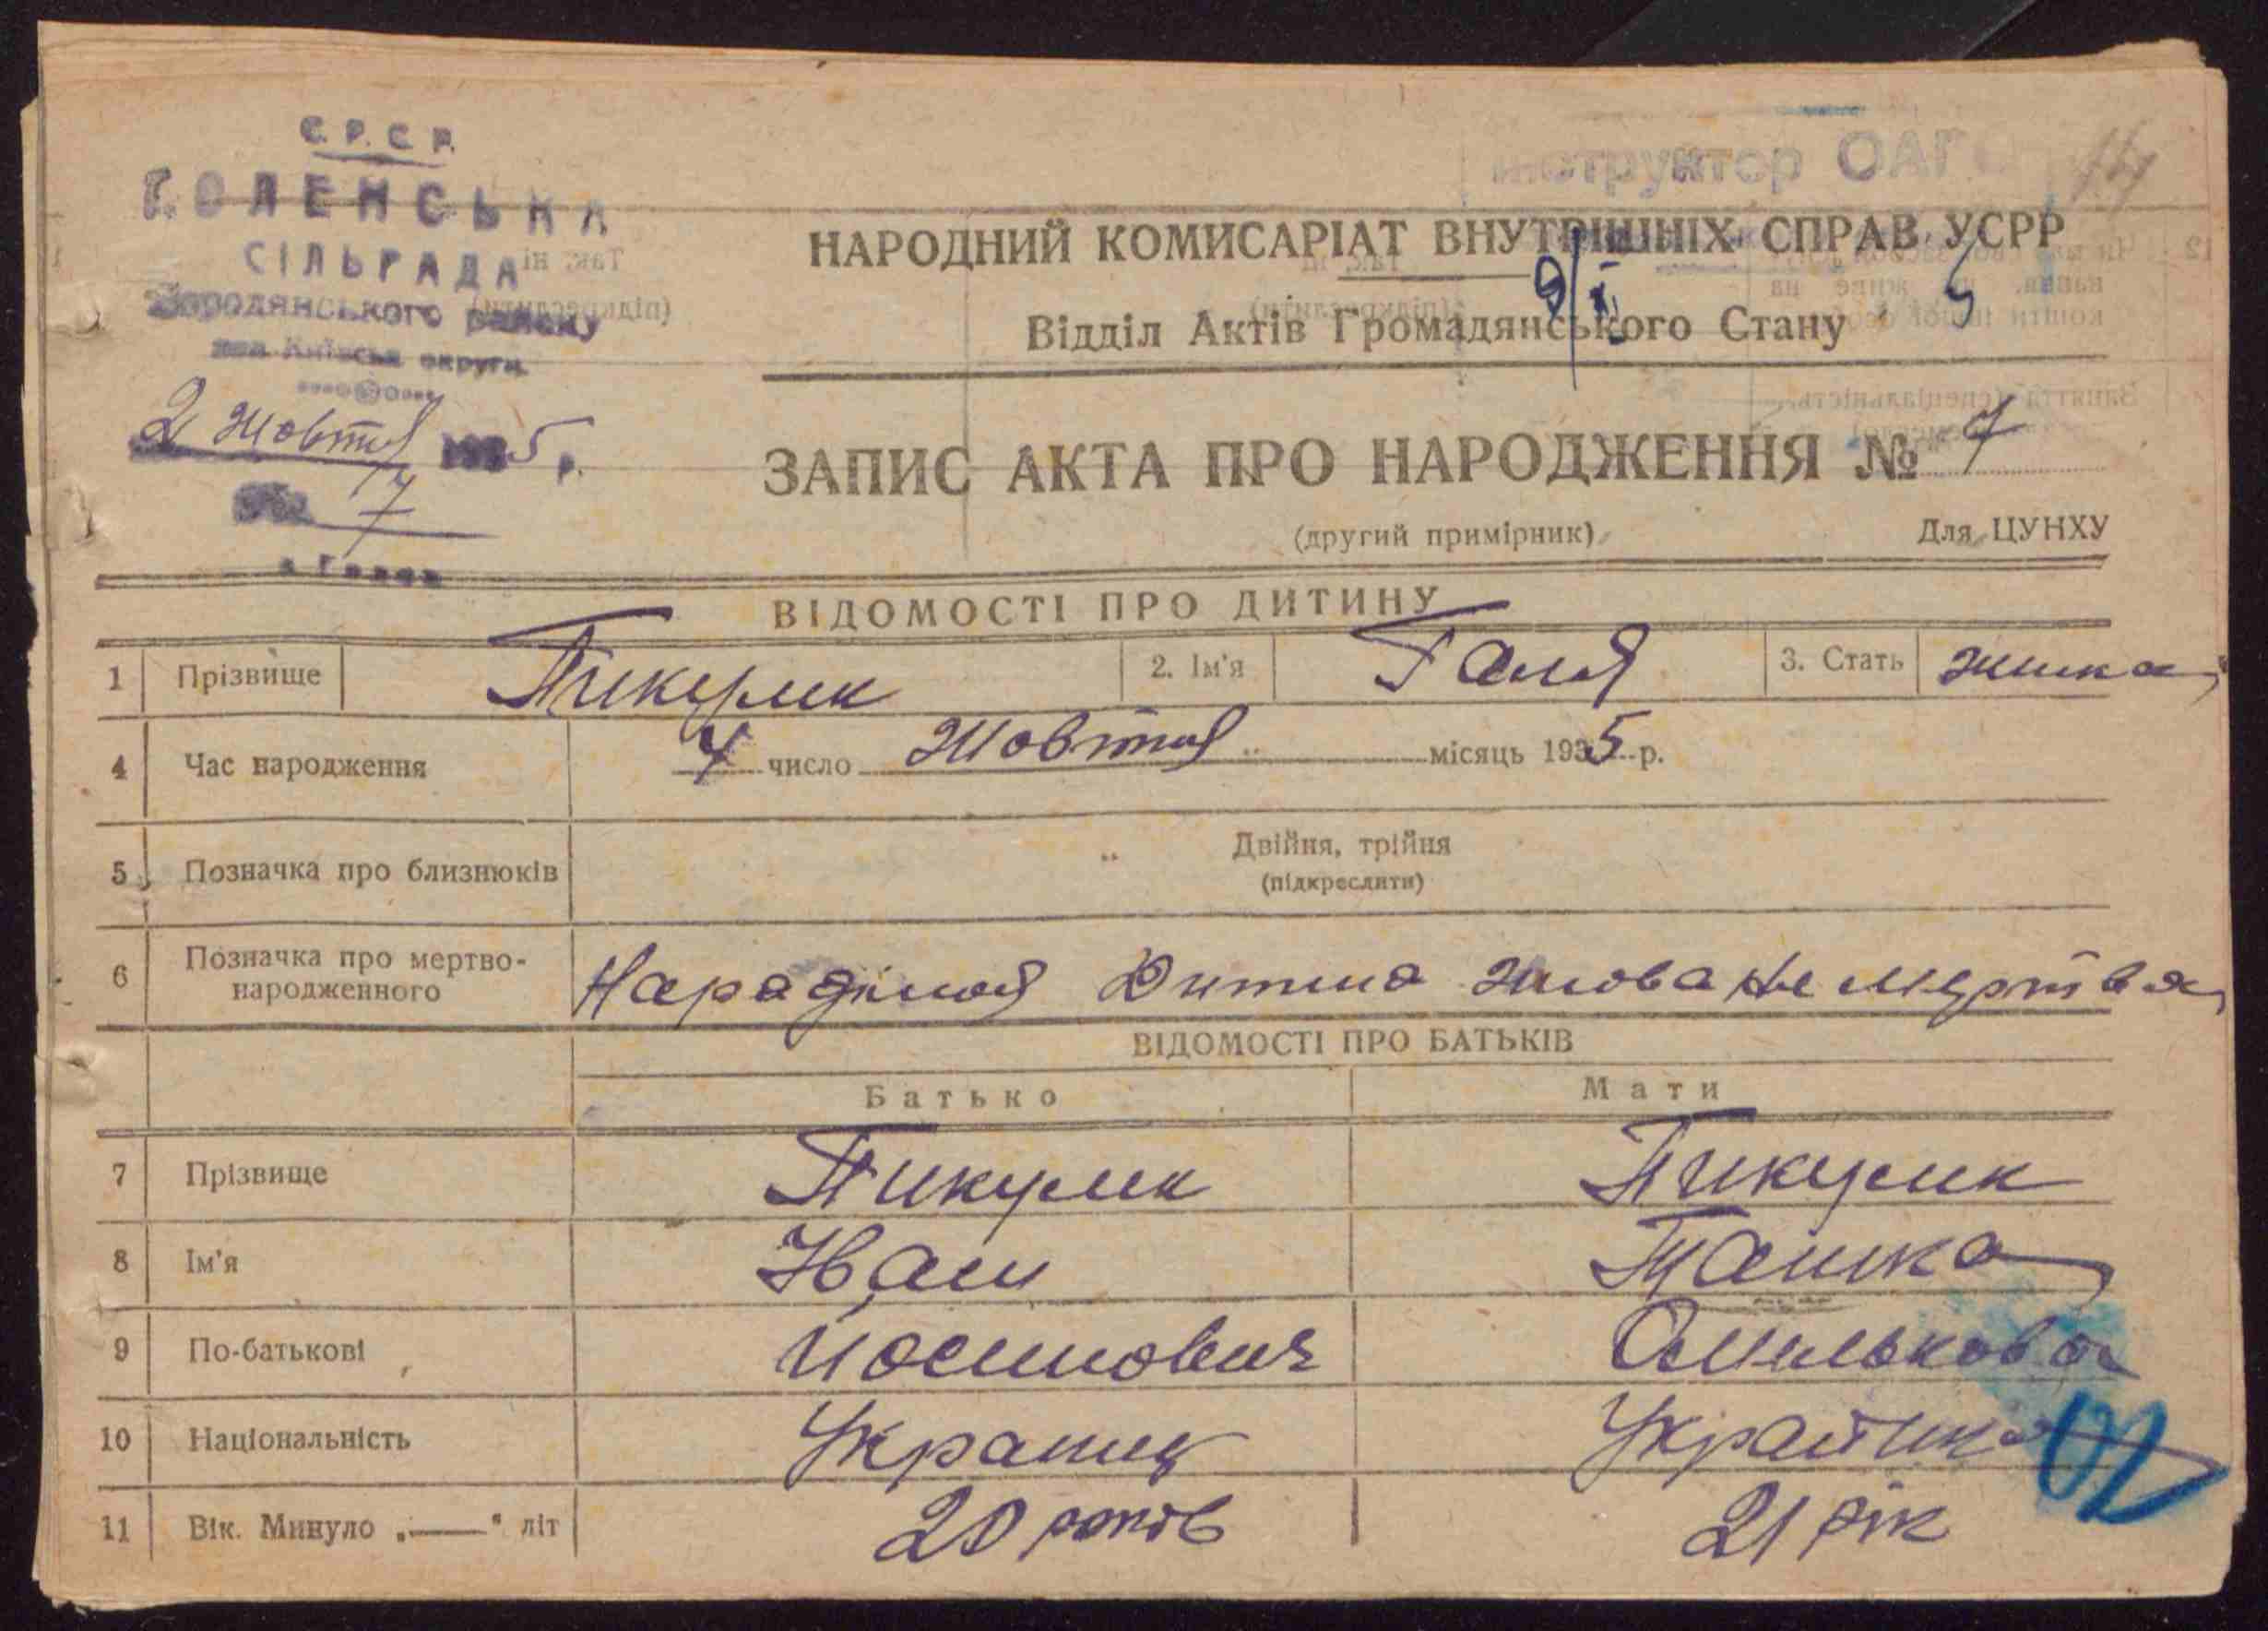 С.Р.С.Р.
ГОЛЕНСЬКА
СІЛЬРАДА
Бородянського району
Київськ округи
2 Жовтня 1935 р.
№ 7
Інструктор ОАГС
НАРОДНИЙ КОМИСАРІАТ ВНУТРІШНІХ СПРАВ УСРР
Відділ Актів Громадянського Стану
ЗАПИС АКТА ПРО НАРОДЖЕННЯ № 7
(другий примірник) Для ЦУНХУ
ВІДОМОСТІ ПРО ДИТИНУ
1 Прізвище Пикулик 2. Ім'я Галя 3. Стать жинка
4 Час народження число Жовтня місяць 1935 р.
5 Позначка про близнюків Двійня, трійня
(підкреслити)
6 Позначка про мертво-
народженного Дитина жива не мертва
ВІДОМОСТІ ПРО БАТЬКІВ
Батько Мати
7 Прізвище Пикулик Пикулик
8 Ім'я Іван
9 По-батькові Йосипович Омелькова
10 Національність Украинц Украйинка
11 Вік. Минуло „—“ літ 20 років 21 рік